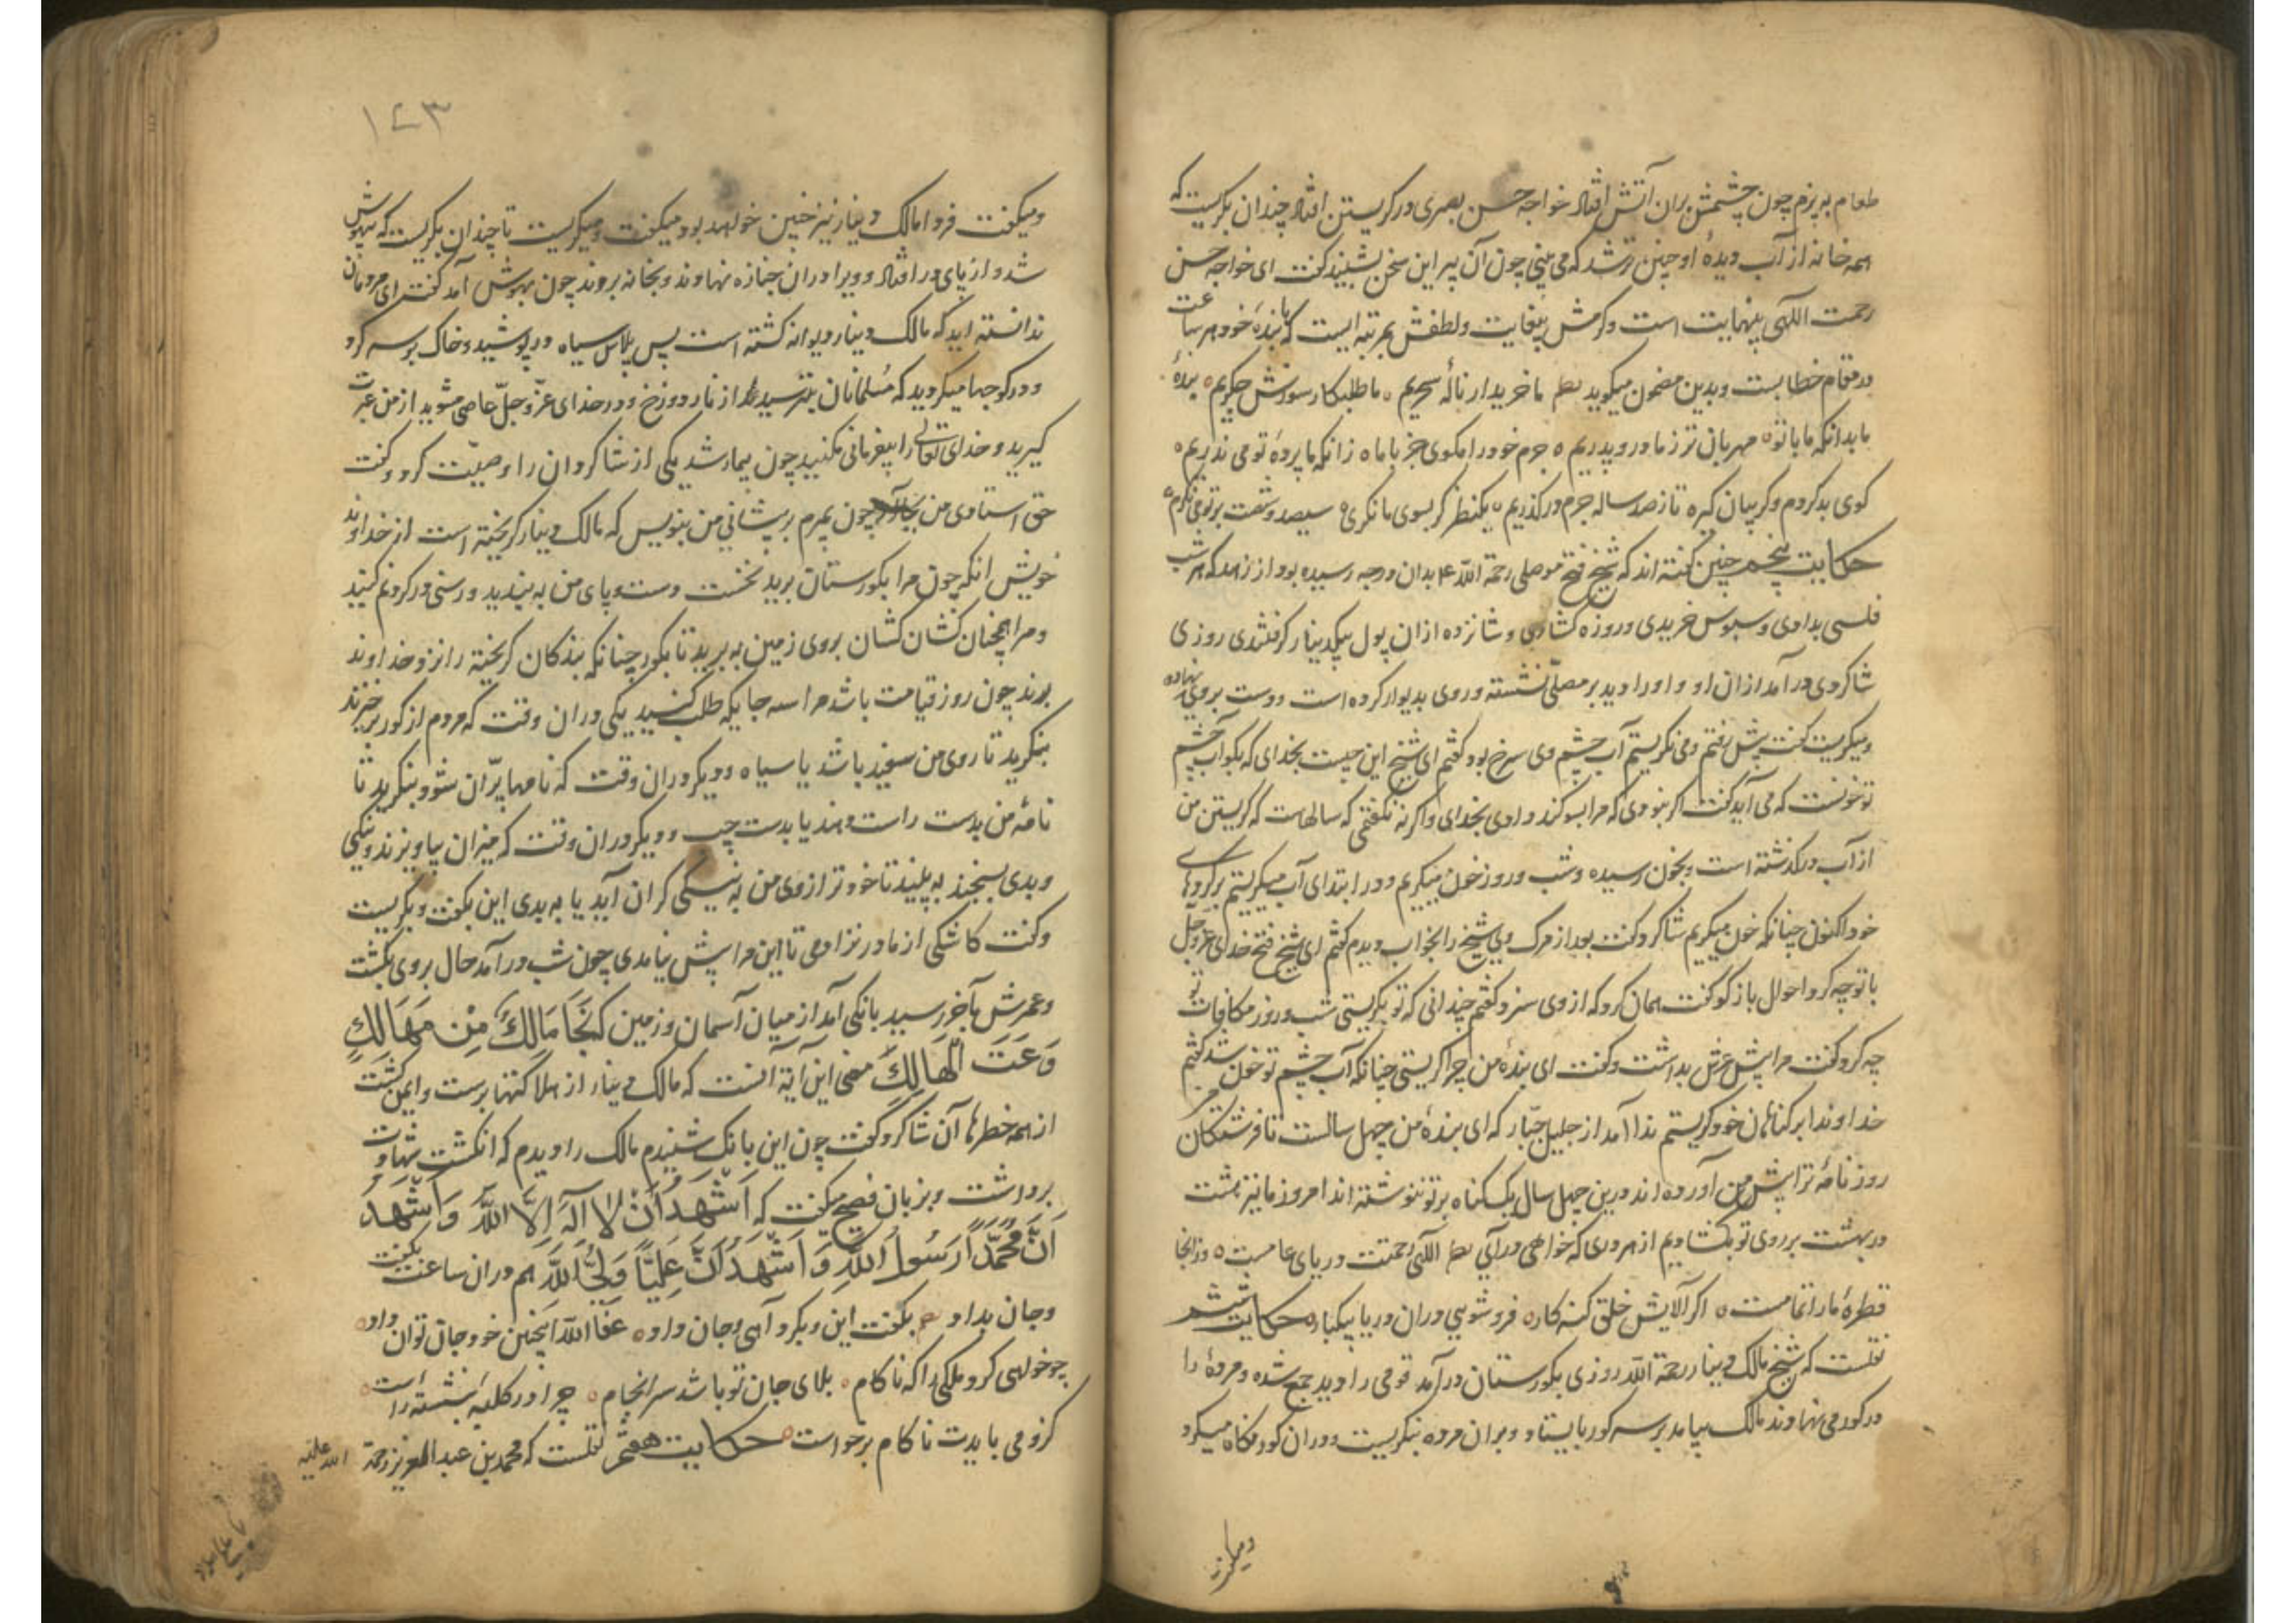 طعام به پزم چون چشمش بران آتش افتاد خواجه حسن بصری در کریستن افتاد چندان بکریست که
همه خانه از آب دیدهٔ او چنین تر شد که می بینی چون آن پیر این سخن بشنید کفت ای خواجه حسن
رحمت الهی بینهایت است و کرمش بیغایت و لطفش بمرتبه ایست که با بندهٔ خود هر ساعت
در مقام خطابست و بدین مضمون میکوید نظم ما خریدار نالهٔ سحریم ما طلبکار سوزش جکریم بندهٔ
ما بدانکه ما با تو مهربان تر ز مادر و پدریم جرم خود را مکوی جز با ما زانکه ما پردهٔ تو می ندریم
کوی بد کردم و کریبان کیر تا ز صد ساله جرم در کذریم یکنظر کر بسوی ما نکری سیصد و شصت بر تو می نکرم
حکایت پنجم چنین کفته اند که شیخ فتح موصلی رحمة الله ع بدان درجه رسیده بود از زهد که هر شب
فلسی بدادی و سبوس خریدی و روزه کشادی و شانزده ازان پول بیکدینار کرفتندی روزی
شاکردی در آمد ازان او و او را دید بر مصلّی نشسته و روی بدیوار کرده است و دست بر روی نهاده
و میکریست کفت پیش رفتم و می نکریستم آب چشم وی سرخ بود کفتم ای شیخ این چیست بخدای که بکو آب چشم
تو خونست که می آید کفت اکر نبودی که مرا سوکند دادی بخدای و اکر نه نکفتمی که سالهاست که کریستن من
از آب در کذشته است و بخون رسیده و شب و روز خون میکریم و در ابتدای آب میکریستم بر کردهای
خود اکنون چنانکه خون میکریم شاکرد کفت بعد از مرک وی شیخ را بخواب دیدم کفتم ای شیخ فتح خدای عزّ و جلّ
با تو چه کرد احوال باز کو کفت همان کرد که از وی سزد کفتم چندانی که تو بکریستی شب و روز مکافات تو
چه کرد کفت مرا پیش عرش بداشت و کفت ای بندهٔ من چرا کریستی چنانکه آب چشم تو خون شد کفتم
خداوندا بر کناهان خود کریستم ندا آمد از جلیل جبّار که ای بندهٔ من چهل سالست تا فرشتکان هر
روز نامهٔ ترا پیش من آورده اند درین چهل سال یک کناه بر تو ننوشته اند امروز ما نیز هشت
در بهشت بر روی تو بکشادیم از هر دری که خواهی در آی نظم الهی رحمتت دریای عامست و زانجا
قطرهٔ ما را تمامست اکر آلایش خلق کنه کار فرو شویی دران دریا بیکبار حکایت ششم
نقلست که شیخ مالک دینار رحمة الله روزی بکورستان در آمد قومی را دید جمع شده و مردهٔ را
در کور می نهادند مالک بیامد بر سر کور بایستاد و بران مرده بنکریست و دران کور نکاه میکرد
و میکفت
۱۴۳
و میکفت فردا مالک دینار نیز چنین خواهد بود میکفت و میکریست تا چندان بکریست که بیهوش
شد و از پای در افتاد و ویرا دران جنازه نهادند و بخانه بردند چون بهوش آمد کفت ای مردمان
ندانسته اید که مالک دینار دیوانه کشته است پس پلاس سیاه در پوشید و خاک بر سر کرد
و در کوچها میکردید که مسلمانان بترسید از نار دوزخ و در خدای عزّ و جلّ عاصی مشوید از من عبرت
کیرید و خدای تعالی را بیفرمانی مکنید چون بیمار شد یکی از شاکردان را وصیّت کرد و کفت
حق استادی من بجا آر چون بمیرم بر پیشانی من بنویس که مالک دینار کریخته است از خداوند
خویش انکه چون مرا بکورستان برید نخست دست و پای من به بندید و رسنی در کردنم کنید
و مرا همچنان کشان کشان بروی زمین به برید تا بکور چنانکه بندکان کریخته را نزد خداوند
برند چون روز قیامت باشد مرا سه جایکه طلب کنید یکی دران وقت که مردم از کور برخیزند
بنکرید تا روی من سفید باشد یا سیاه و دیکر دران وقت که نامها پرّان شود بنکرید تا
نامهٔ من بدست راست دهند یا بدست چپ و دیکر دران وقت که میزان بیاویزند و نیکی
و بدی بسنجند به بینید تا خود ترازوی من به نیکی کران آید یا به بدی این بکفت و بکریست
و کفت کاشکی از مادر نزادمی تا این مرا پیش نیامدی چون شب در آمد حال بروی بکشت
و عمرش بآخر رسید بانکی آمد از میان آسمان و زمین که نَجَا مَالِكُ مِنْ مَهَالِكِ
وَعَتَ الْهَالِكَ معنی این آیة آنست که مالک دینار از هلاکتها برست و ایمن کشت
از همه خطرها آن شاکرد کفت چون این بانک شنیدم مالک را دیدم که انکشت شهادت
برداشت و بزبان فصیح میکفت که اَشْهَدُ اَنْ لا اِلَهَ اِلَّا اللَّهُ وَ اَشْهَدُ
اَنَّ مُحَمَّدًا رَسُولُ اللَّهِ وَ اَشْهَدُ اَنَّ عَلِيًّا وَلِيُّ اللَّهِ هم دران ساعت بکفت
و جان بداد بکفت این و بکرد آهی و جان داد عفا الله اینچنین خود جان توان داد
چو خواهی کرد ملکی را که ناکام بلای جان تو باشد سرانجام چرا در کلبهٔ بنشسته راست
کزو می بایدت ناکام برخواست حکایت هفتم نقلست که محمد بن عبد العزیز رحمة الله علیه